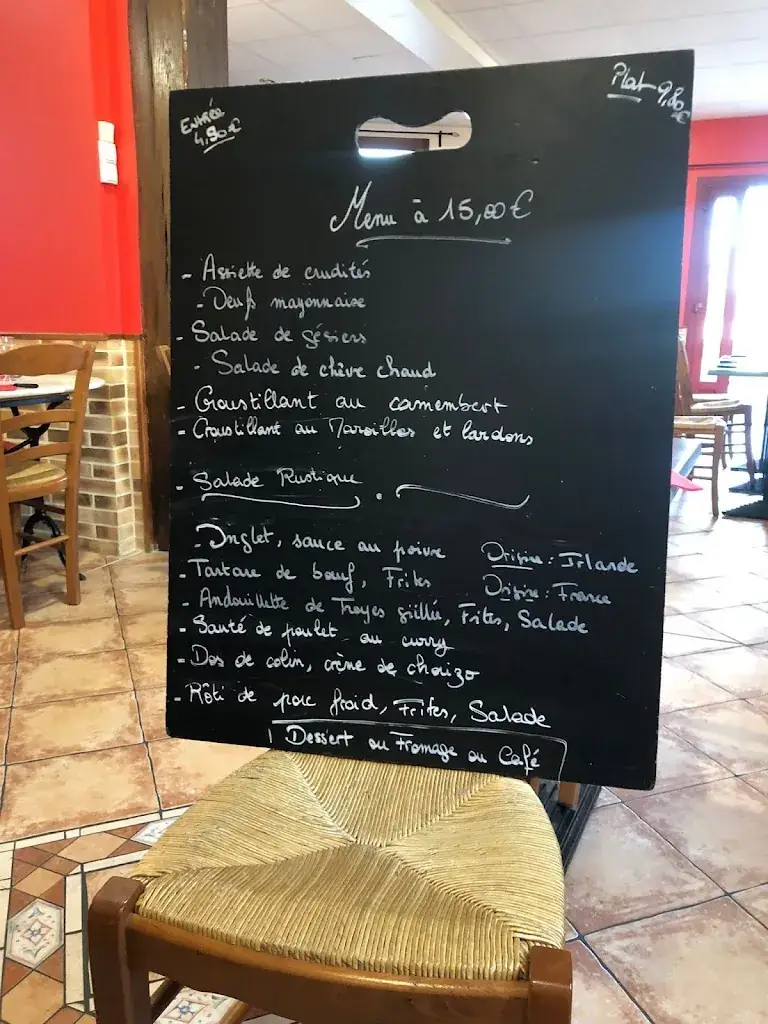 Entrée
4,90€
Plat 9,80
€
Menu à 15,00€
- Assiette de crudités
- Oeufs mayonnaise
- Salade de gésiers
- Salade de chèvre chaud
- Croustillant au camembert
- Croustillant au Maroilles et lardons
- Salade Rustique
- Onglet, sauce au poivre Origine : Irlande
- Tartare de bœuf, Frites Origine : France
- Andouillette de Troyes grillée, Frites, Salade
- Sauté de poulet au curry
- Dos de colin, crème de chorizo
- Rôti de porc froid, Frites, Salade
1 Dessert ou Fromage ou Café